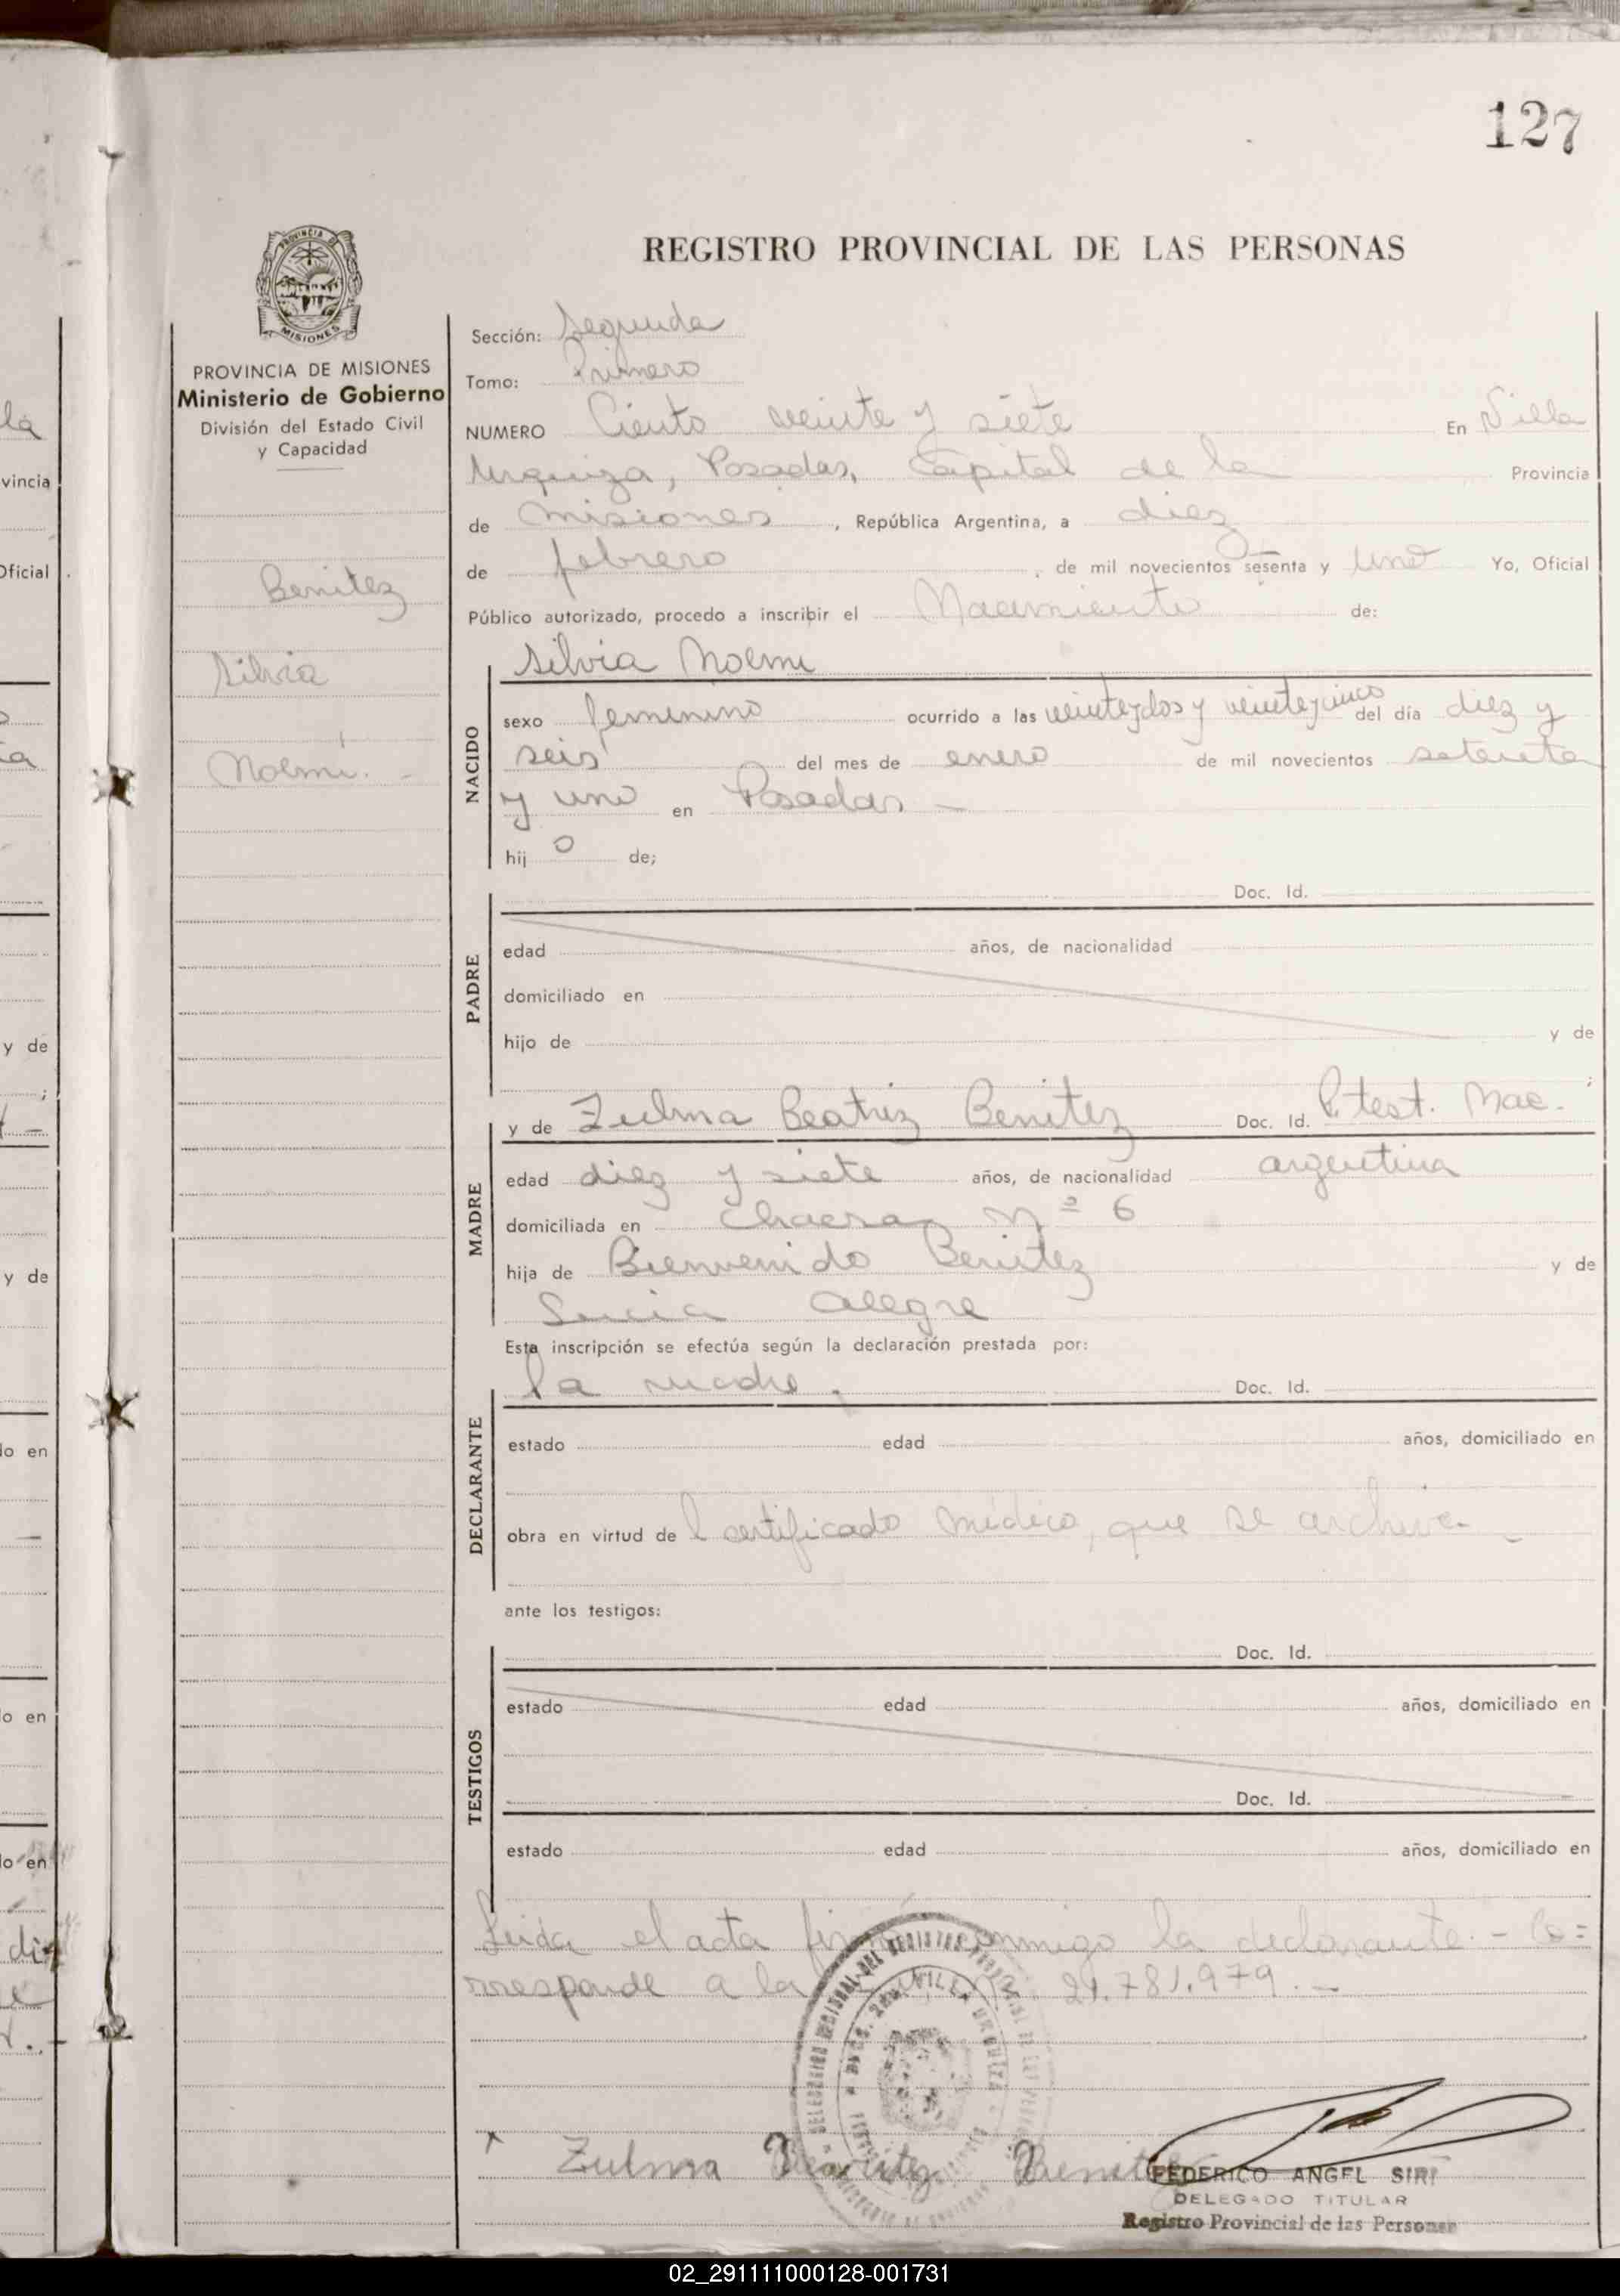 127
REGISTRO PROVINCIAL DE LAS PERSONAS
PROVINCIA DE MISIONES
Ministerio de Gobierno
División del Estado Civil
y Capacidad
Benitez
Silvia
Noemi.
Sección: Segunda
Tomo: Primero
NUMERO Ciento veinte y siete En Villa
Urquiza, Posadas, Capital de la Provincia
de Misiones, República Argentina, a diez
de febrero, de mil novecientos sesenta y uno Yo, Oficial
Público autorizado, procedo a inscribir el Nacimiento de:
NACIDO
Silvia Noemi
sexo femenino ocurrido a las veinteydos y veinteycinco del día diez y
seis del mes de enero de mil novecientos setenta
y uno en Posadas –
hij o de;
PADRE
Doc. Id.
edad años, de nacionalidad
domiciliado en
hijo de y de
;
MADRE
y de Zulma Beatriz Benitez Doc. Id. P. test. Nac.
edad diez y siete años, de nacionalidad argentina
domiciliada en Chacra Nº 6
hija de Bienvenido Benitez y de
Lucia Alegre
Esta inscripción se efectúa según la declaración prestada por:
DECLARANTE
la madre. Doc. Id.
estado edad años, domiciliado en
obra en virtud de l certificado médico, que se archiva. –
ante los testigos:
TESTIGOS
Doc. Id.
estado edad años, domiciliado en
Doc. Id.
estado edad años, domiciliado en
Leida el acta conmigo la declarante. – Co=
rresponde a la 21.781.979. –
x Zulma Beatriz Benitez
FEDERICO ANGEL SIRI
DELEGADO TITULAR
Registro Provincial de las Personas
la
vincia
Oficial
y de
y de
do en
lo en
lo en
02_291111000128-001731